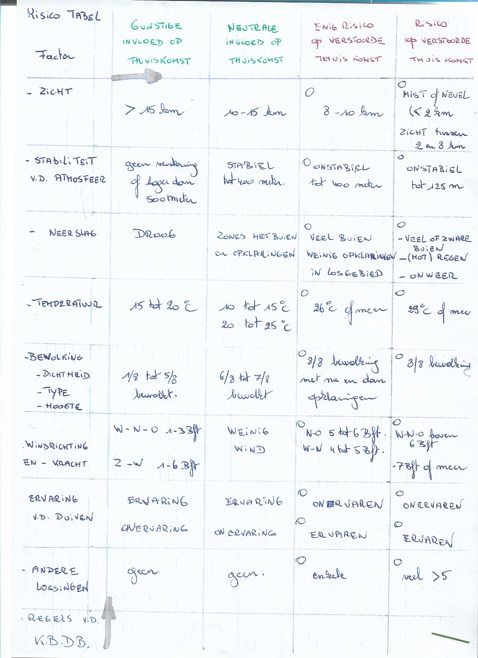 RISICO TABEL
Factor
GUNSTIGE
INVLOED OP
THUISKOMST
NEUTRALE
INVLOED OP
THUISKOMST
ENIG RISICO
op VERSTOORDE
THUISKOMST
RISICO
op VERSTOORDE
THUIS KOMST
- ZICHT
> 15 km
10-15 km
8 - 10 km
MIST of NEVEL
(< 2 km
ZICHT tussen
2 en 8 km
- STABILITEIT
V.D. ATMOSFEER
geen
of hoger dan
500 meter
STABIEL
tot 400 meter.
ONSTABIEL
tot 400 meter
ONSTABIEL
tot 125 m
- NEERSLAG
DROOG
ZONES MET BUIEN
en OPKLARINGEN
VEEL BUIEN
WEINIG OPKLARINGEN
IN LOSGEBIED
- VEEL OF ZWARE
BUIEN
- (MOT) REGEN
- ONWEER
- TEMPERATUUR
15 tot 20°C
10 tot 15°C
20 tot 25°C
26°C of meer
29°C of meer
- BEWOLKING
- DICHTHEID
- TYPE
- HOOGTE
1/8 tot 5/8
bewolkt.
6/8 tot 7/8
bewolkt
8/8 bewolking
met nu en dan
opklaringen
8/8 bewolking
WINDRICHTING
EN - KRACHT
W-N-O 1-3 Bft
Z-W 1-6 Bft
WEINIG
WIND
N-O 5 tot 6 Bft.
W-N 4 tot 5 Bft.
W-N-O boven
6 Bft
- 7 Bft of meer
ERVARING
V.D. DUIVEN
ERVARING
ONERVARING
ERVARING
ONERVARING
ONERVAREN
ERVAREN
ONERVAREN
ERVAREN
- ANDERE
LOSSINGEN
geen
geen.
enkele
veel >5
- REGELS V.D.
K.B.D.B.